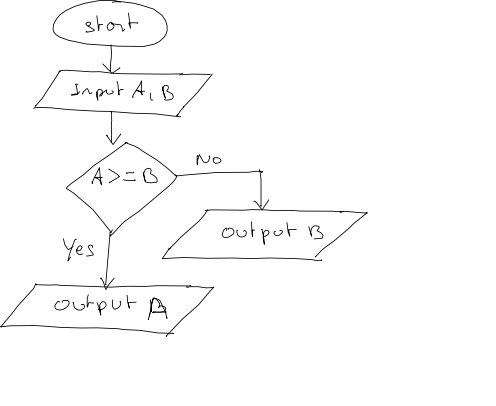 start
Input A, B
A>=B
No
Yes
output B
output A